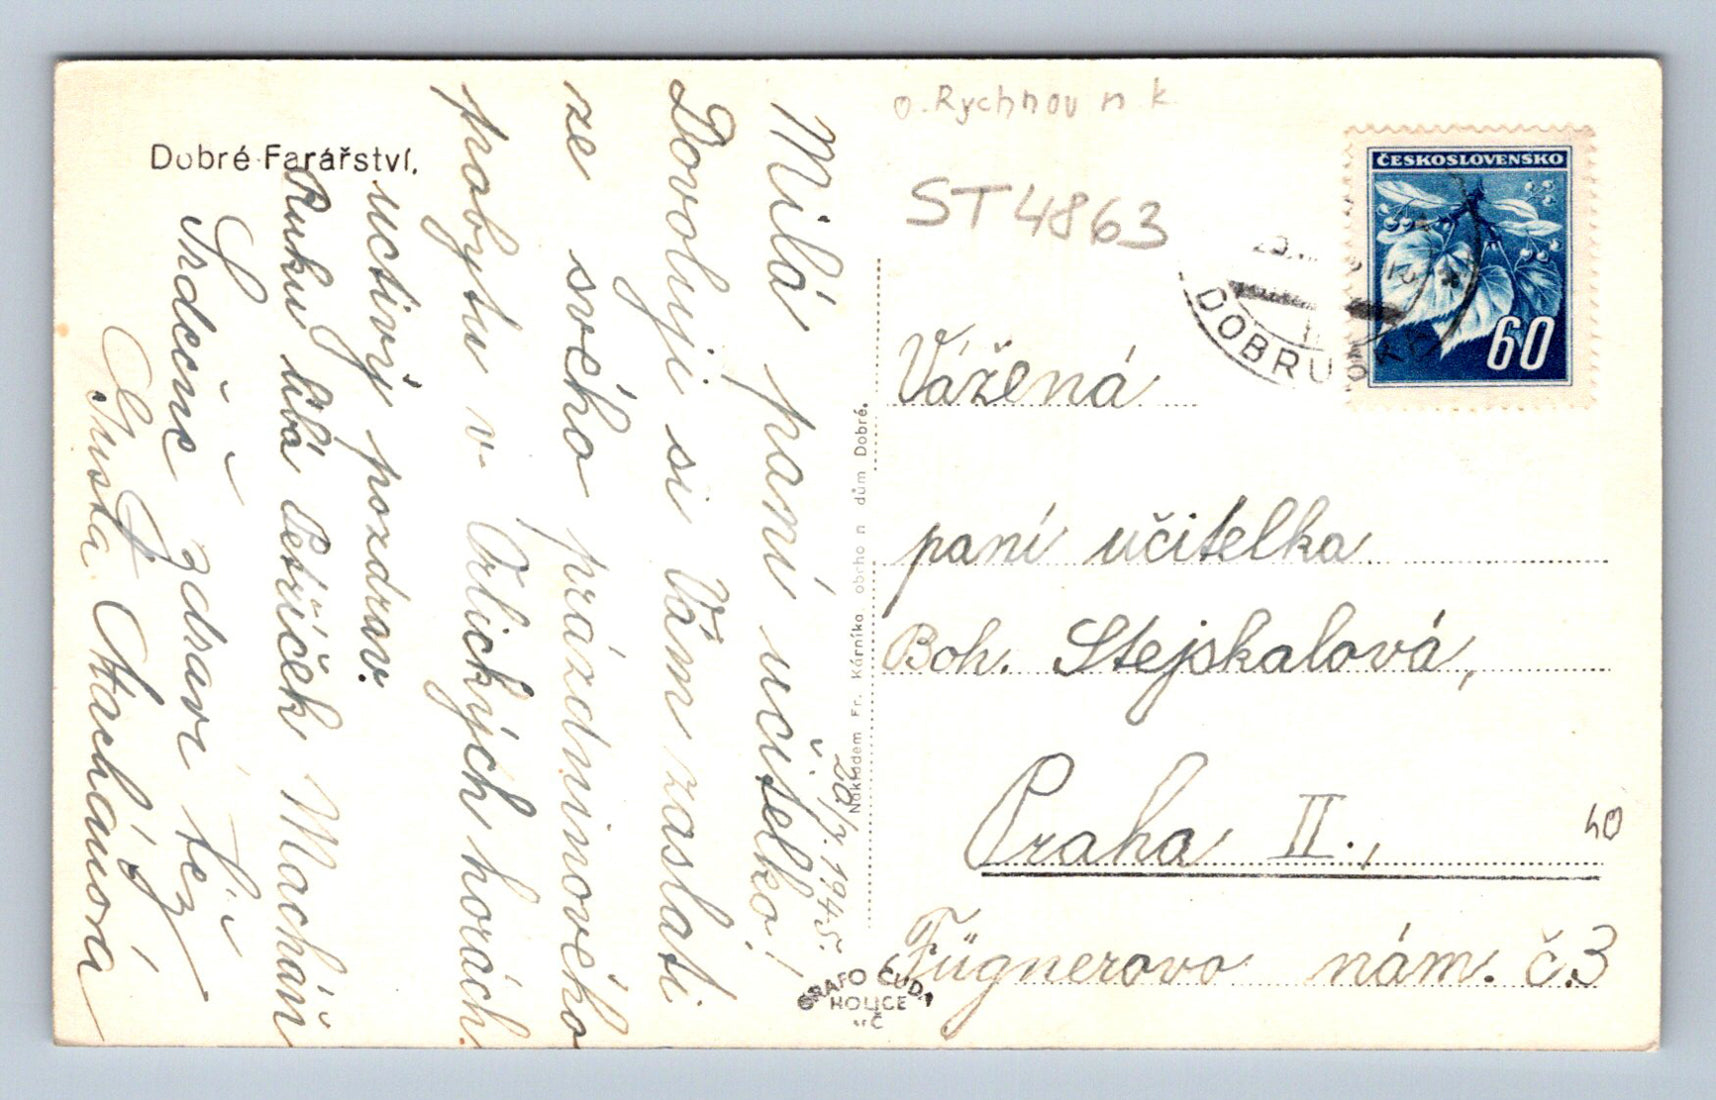 Dobré-Farářství.
Milá paní učitelko!
Dovoluji si Vám zaslati
ze svého prázdninového
pobytu v Orlických horách
uctivý pozdrav.
Ruku líbá Petříček Macháň
Srdečně zdraví též
Gusta Macháňová
20/7. 1945.
Nákladem Fr. Kárníka, obchodn dům Dobré.
GRAFO ČUDA
HOLICE
v Č
o. Rychnov n k
ST4863
ČESKOSLOVENSKO
60
DOBRUŠKA
Vážená
paní učitelka
Boh. Stejskalová,
Praha II.,
Fügnerovo nám. č.3
40